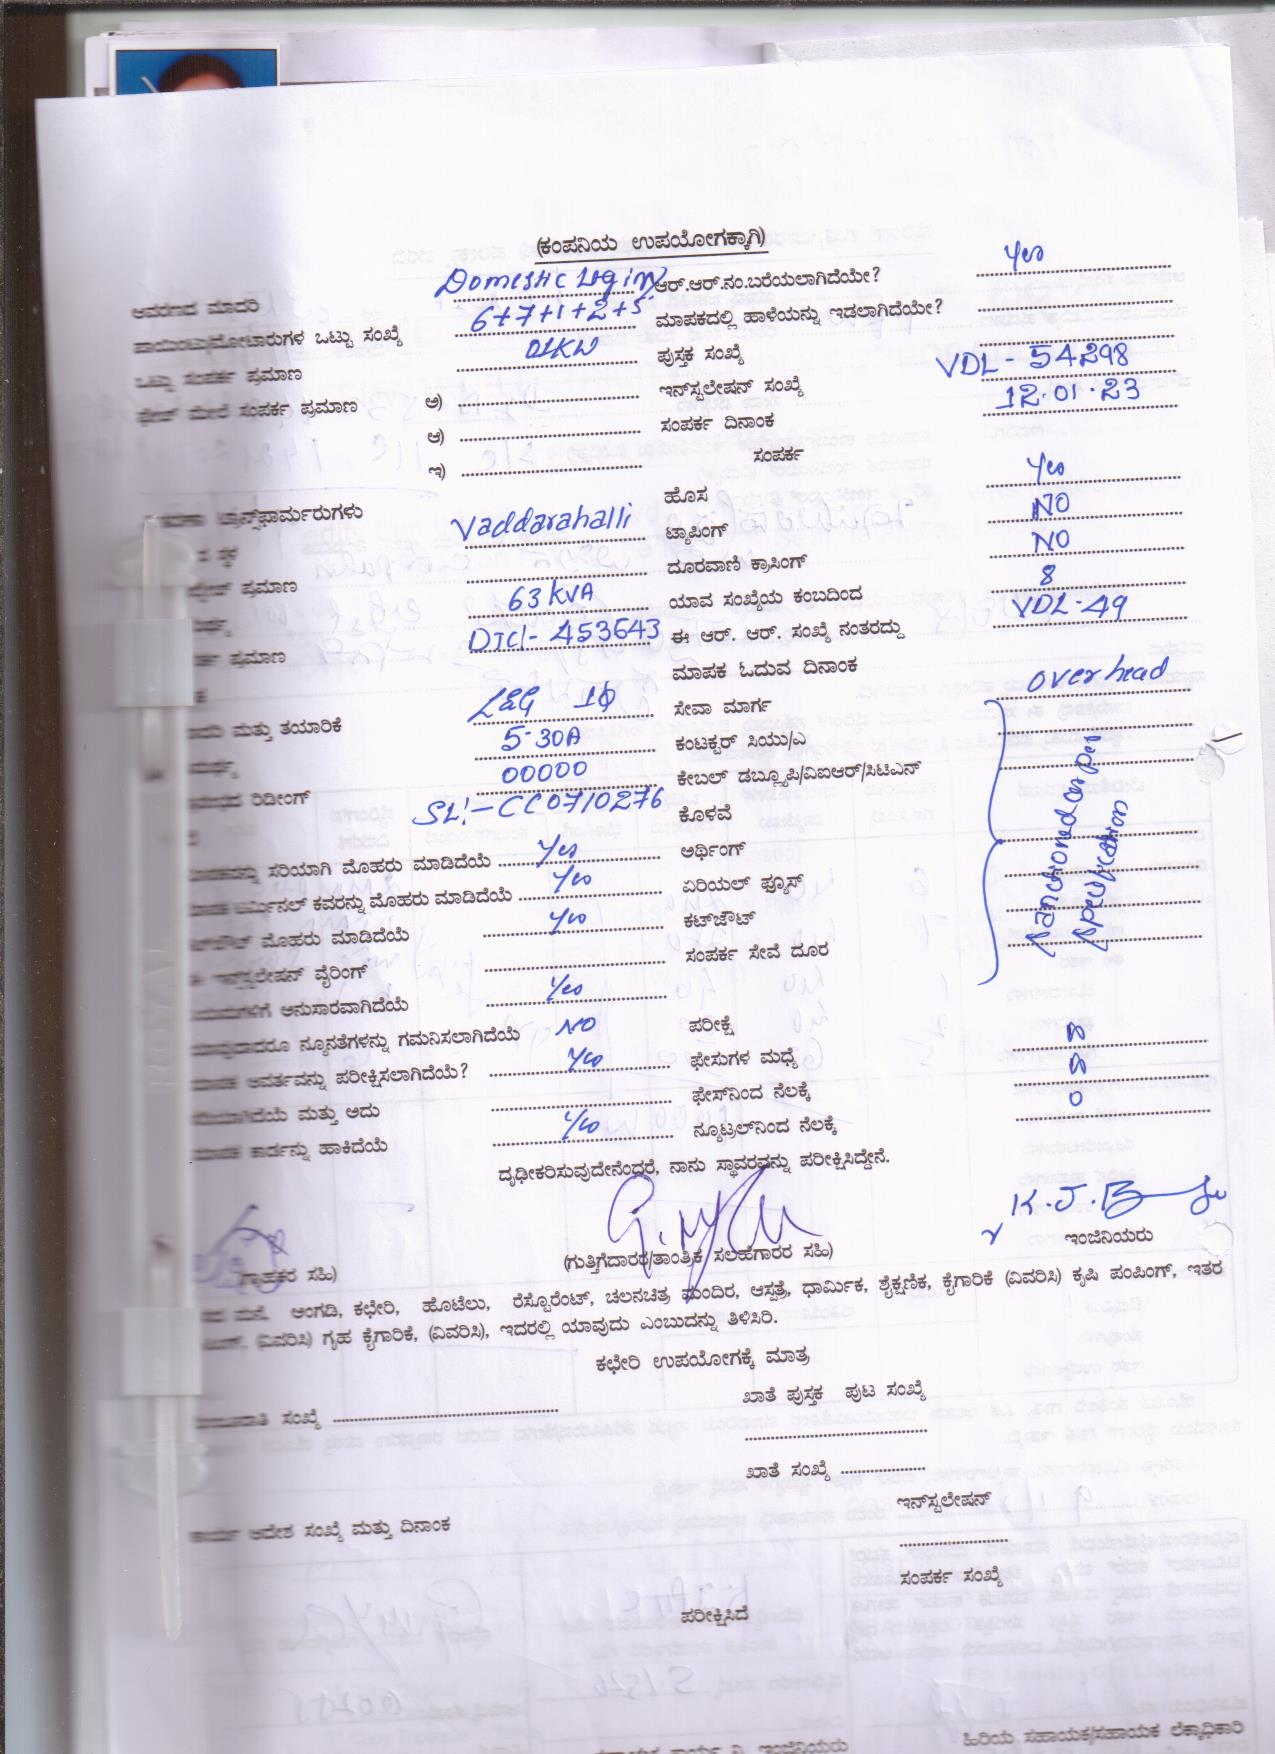 (ಕಂಪನಿಯ ಉಪಯೋಗಕ್ಕಾಗಿ)
ಆವರಣದ ಮಾದರಿ Domestic Ligting ಆರ್.ಆರ್.ನಂ.ಬರೆಯಲಾಗಿದೆಯೇ? Yes
ಪಾಯಿಂಟು/ಮೋಟಾರುಗಳ ಒಟ್ಟು ಸಂಖ್ಯೆ 6+7+1+2+5 ಮಾಪಕದಲ್ಲಿ ಹಾಳೆಯನ್ನು ಇಡಲಾಗಿದೆಯೇ?
ಒಟ್ಟು ಸಂಪರ್ಕ ಪ್ರಮಾಣ 01KW ಪುಸ್ತಕ ಸಂಖ್ಯೆ
ಫೇಜ್ ಮೇಲೆ ಸಂಪರ್ಕ ಪ್ರಮಾಣ ಅ) ಇನ್‌ಸ್ಟಲೇಷನ್ ಸಂಖ್ಯೆ VDL - 54298
ಆ) ಸಂಪರ್ಕ ದಿನಾಂಕ 12.01.23
ಇ) ಸಂಪರ್ಕ
ಟ್ರಾನ್ಸ್‌ಫಾರ್ಮರುಗಳು ಹೊಸ Yes
Vaddarahalli ಟ್ಯಾಪಿಂಗ್ NO
ಪ್ರಮಾಣ ದೂರವಾಣಿ ಕ್ರಾಸಿಂಗ್ NO
63 KVA ಯಾವ ಸಂಖ್ಯೆಯ ಕಂಬದಿಂದ 8
ಪ್ರಮಾಣ DTC!- 453643 ಈ ಆರ್. ಆರ್. ಸಂಖ್ಯೆ ನಂತರದ್ದು VDL-49
ಮಾಪಕ ಓದುವ ದಿನಾಂಕ
ಮತ್ತು ತಯಾರಿಕೆ L&G 1Φ ಸೇವಾ ಮಾರ್ಗ over head
5-30A ಕಂಟಕ್ಟರ್ ಸಿಯು/ಎ
ರಿಡೀಂಗ್ 00000 ಕೇಬಲ್ ಡಬ್ಲ್ಯೂಪಿ/ವಿಐಆರ್/ಸಿಟಿಎನ್
SL!- CC0710276 ಕೊಳವೆ
ಸರಿಯಾಗಿ ಮೊಹರು ಮಾಡಿದೆಯೆ Yes ಅರ್ಥಿಂಗ್
ಮಾಪಕ ಟರ್ಮಿನಲ್ ಕವರನ್ನು ಮೊಹರು ಮಾಡಿದೆಯೆ Yes ಏರಿಯಲ್ ಫ್ಯೂಸ್
ಮೊಹರು ಮಾಡಿದೆಯೆ Yes ಕಟ್‌ಔಟ್
ಇನ್‌ಸ್ಟಲೇಷನ್ ವೈರಿಂಗ್ ಸಂಪರ್ಕ ಸೇವೆ ದೂರ
Sanctioned as per
Application
ನಿಯಮಗಳಿಗೆ ಅನುಸಾರವಾಗಿದೆಯೆ Yes
ಯಾವುದಾದರೂ ನ್ಯೂನತೆಗಳನ್ನು ಗಮನಿಸಲಾಗಿದೆಯೆ NO ಪರೀಕ್ಷೆ
ಮಾಪಕ ಆವರ್ತವನ್ನು ಪರೀಕ್ಷಿಸಲಾಗಿದೆಯೆ? Yes ಫೇಸುಗಳ ಮಧ್ಯೆ
ಸರಿಯಾಗಿದೆಯೆ ಮತ್ತು ಅದು ಫೇಸ್‌ನಿಂದ ನೆಲಕ್ಕೆ
ಮಾಪಕ ಕಾರ್ಡನ್ನು ಹಾಕಿದೆಯೆ Yes ನ್ಯೂಟ್ರಲ್‌ನಿಂದ ನೆಲಕ್ಕೆ 0
ದೃಢೀಕರಿಸುವುದೇನೆಂದರೆ, ನಾನು ಸ್ಥಾವರವನ್ನು ಪರೀಕ್ಷಿಸಿದ್ದೇನೆ.
ಗ್ರಾಹಕರ ಸಹಿ) (ಗುತ್ತಿಗೆದಾರರ/ತಾಂತ್ರಿಕ ಸಲಹೆಗಾರರ ಸಹಿ) ಇಂಜಿನಿಯರು
ಮನೆ, ಅಂಗಡಿ, ಕಛೇರಿ, ಹೊಟೆಲು, ರೆಸ್ಟೊರೆಂಟ್, ಚಲನಚಿತ್ರ ಮಂದಿರ, ಆಸ್ಪತ್ರೆ, ಧಾರ್ಮಿಕ, ಶೈಕ್ಷಣಿಕ, ಕೈಗಾರಿಕೆ (ವಿವರಿಸಿ) ಕೃಷಿ ಪಂಪಿಂಗ್, ಇತರ
(ವಿವರಿಸಿ) ಗೃಹ ಕೈಗಾರಿಕೆ, (ವಿವರಿಸಿ), ಇದರಲ್ಲಿ ಯಾವುದು ಎಂಬುದನ್ನು ತಿಳಿಸಿರಿ.
ಕಛೇರಿ ಉಪಯೋಗಕ್ಕೆ ಮಾತ್ರ
ಖಾತೆ ಪುಸ್ತಕ ಪುಟ ಸಂಖ್ಯೆ
ಮಂಜೂರಾತಿ ಸಂಖ್ಯೆ
ಖಾತೆ ಸಂಖ್ಯೆ
ಇನ್‌ಸ್ಟಲೇಷನ್
ಕಾರ್ಯ ಆದೇಶ ಸಂಖ್ಯೆ ಮತ್ತು ದಿನಾಂಕ
ಸಂಪರ್ಕ ಸಂಖ್ಯೆ
ಪರೀಕ್ಷಿಸಿದೆ
ಹಿರಿಯ ಸಹಾಯಕ/ಸಹಾಯಕ ಲೆಕ್ಕಾಧಿಕಾರಿ